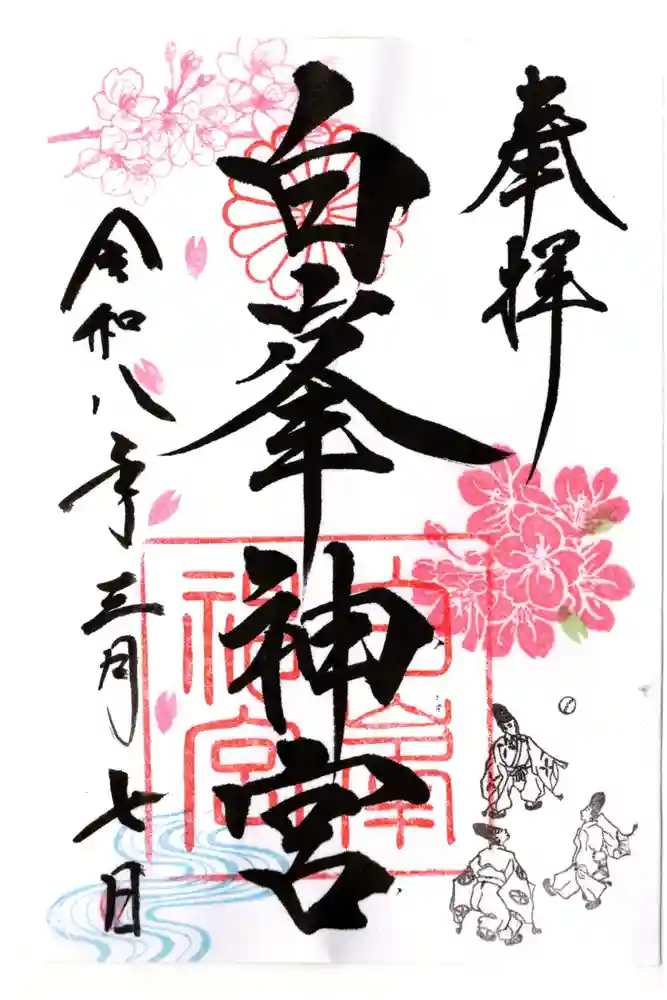 奉拝
白峯神宮
白峯
神宮
令和八年三月七日